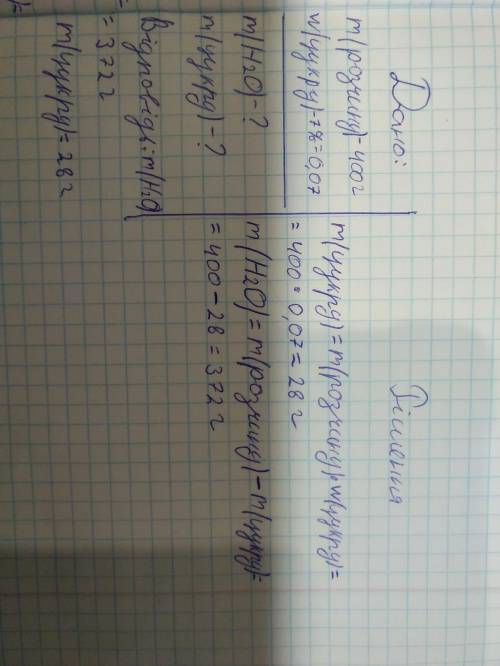 Дано:
m(розчину)-400г
w(цукру)-7%=0,07
m(H2O)-?
m(цукру)-?
Відповідь: m(H2O)
= 372г
m(цукру)=28г
Рішення
m(цукру)=m(розчину)·w(цукру)=
= 400 · 0,07 = 28 г
m(H2O)=m(розчину)-m(цукру)=
= 400 - 28 = 372 г